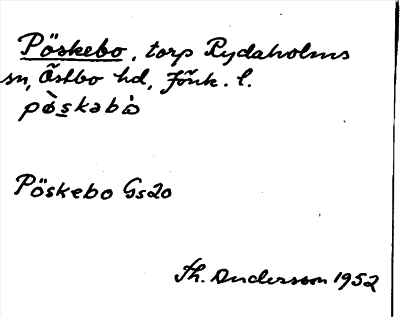 Pöskebo, torp Rydaholms
sn, Östbo hd, Jönk. l.
pø̀skabò
Pöskebo Gs20
Th. Andersson 1952